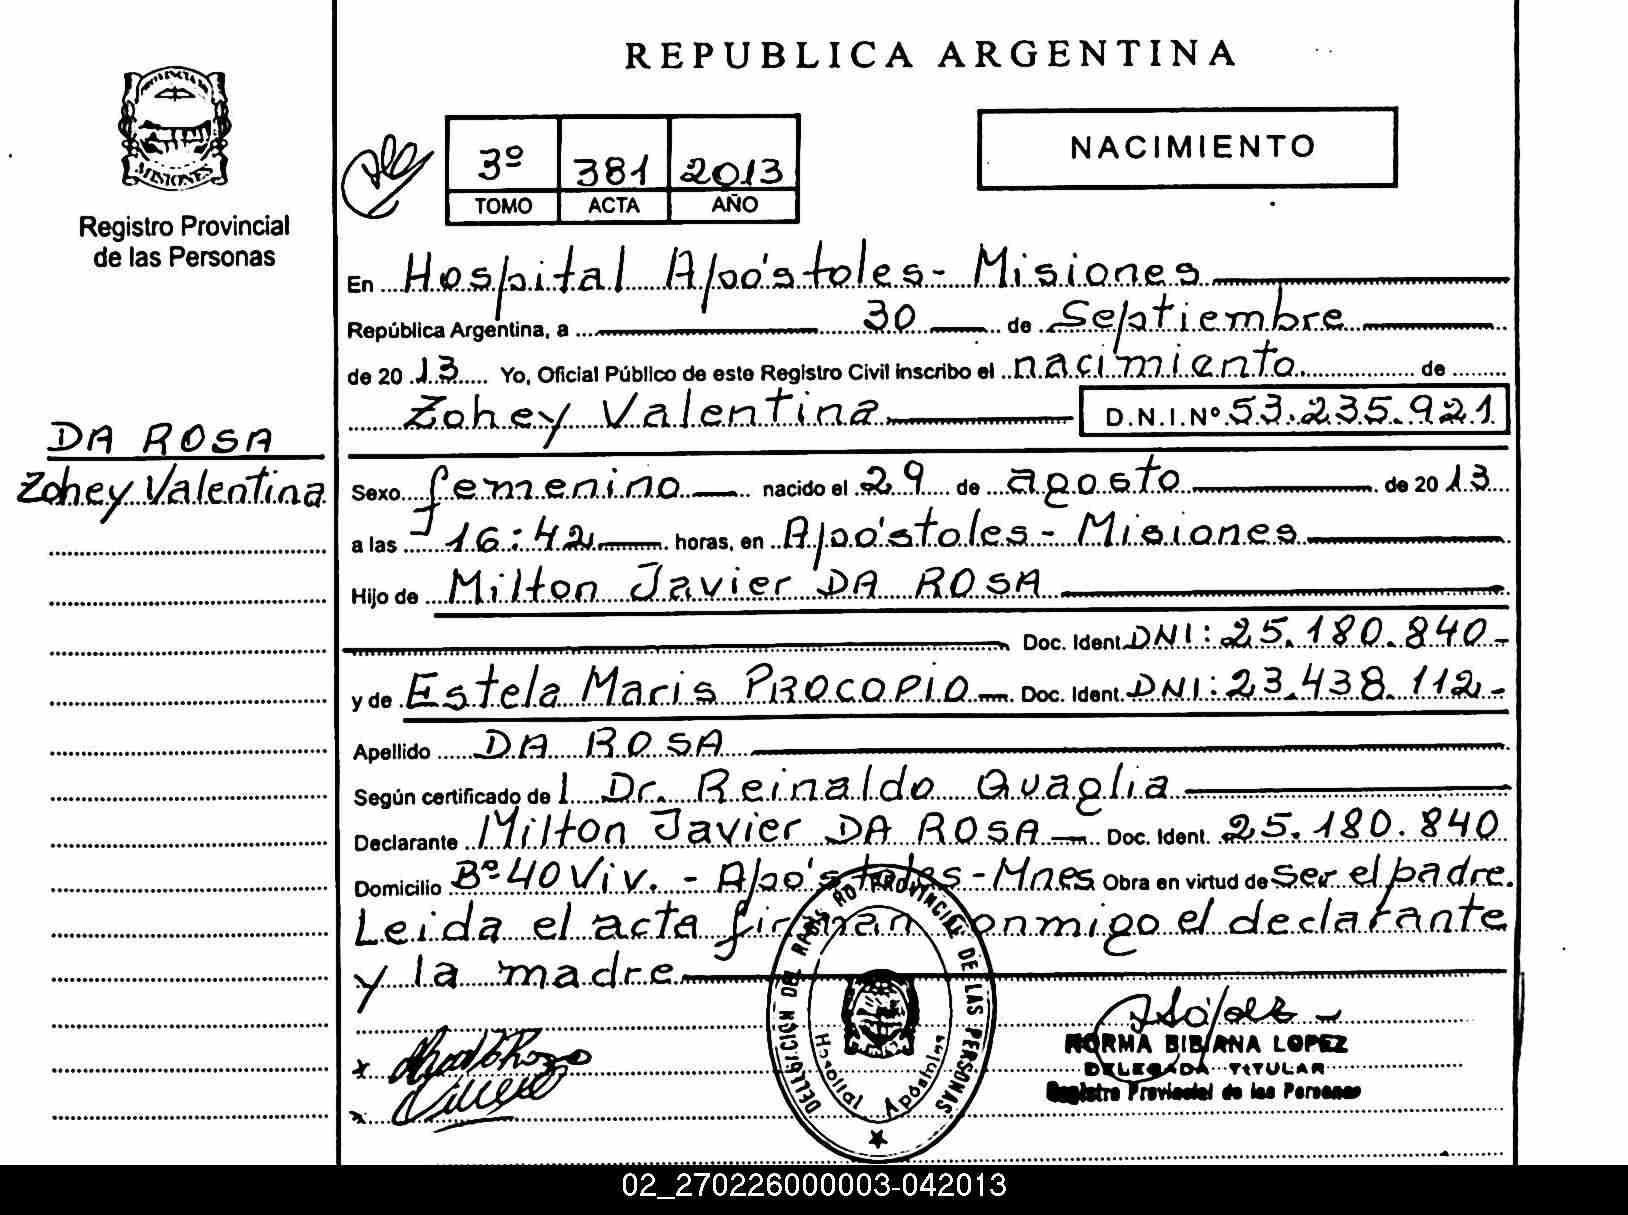 REPUBLICA ARGENTINA
PROVINCIA DE
MISIONES
Registro Provincial
de las Personas
3º 381 2013
TOMO ACTA AÑO
NACIMIENTO
En Hospital Apóstoles - Misiones
República Argentina, a 30 de Septiembre
de 2013 Yo, Oficial Público de este Registro Civil inscribo el nacimiento de
Zohey Valentina D.N.I.Nº 53.235.921
DA ROSA
Zohey Valentina
Sexo femenino nacido el 29 de agosto de 2013
a las 16:42 horas, en Apóstoles - Misiones
Hijo de Milton Javier DA ROSA
Doc. Ident. DNI: 25.180.840-
y de Estela Maris PROCOPIO Doc. Ident. DNI: 23.438.112-
Apellido DA ROSA
Según certificado del Dr. Reinaldo Quaglia
Declarante Milton Javier DA ROSA Doc. Ident. 25.180.840
Domicilio Bº 40 Viv. - Apóstoles - Mnes Obra en virtud de ser el padre.
Leida el acta firman conmigo el declarante
y la madre
DELEGACION DEL REGISTRO PROVINCIAL DE LAS PERSONAS
Hospital Apóstoles
NORMA BIBIANA LOPEZ
DELEGADA TITULAR
Registro Provincial de las Personas
02_270226000003-042013